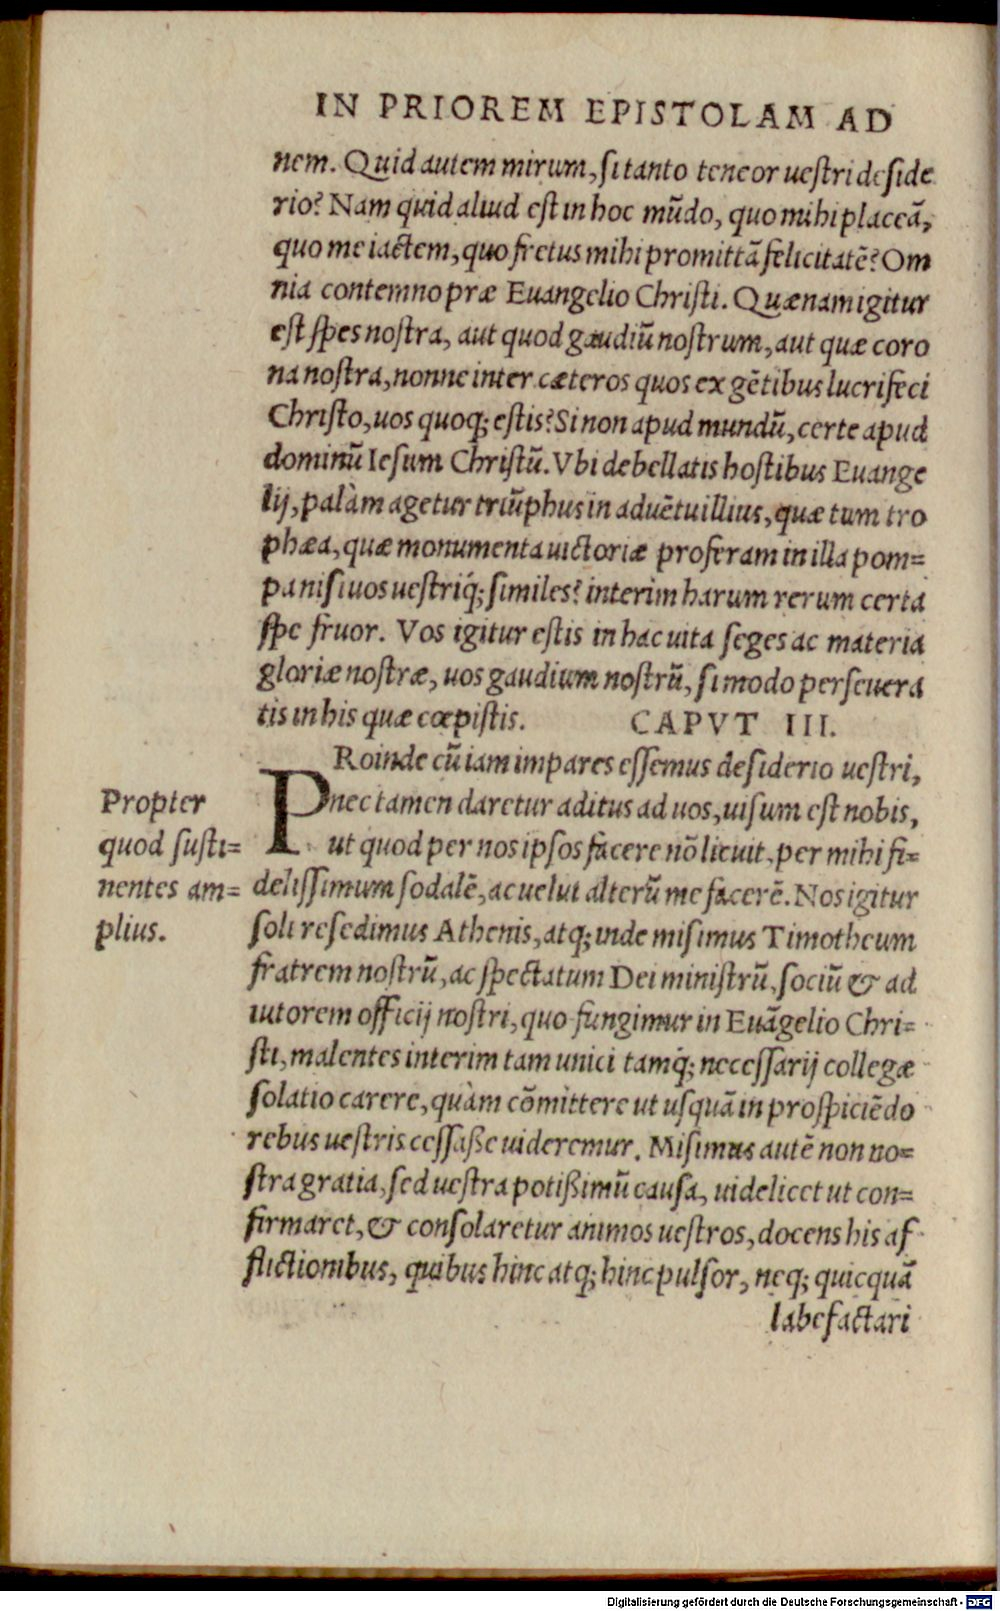 IN PRIOREM EPISTOLAM AD
nem. Quid autem mirum, si tanto teneor uestri deside
rio? Nam quid aliud est in hoc mũdo, quo mihi placeã,
quo me iactem, quo fretus mihi promittã felicitatẽ? Om
nia contemno præ Euangelio Christi. Quænam igitur
est spes nostra, aut quod gaudiũ nostrum, aut quæ coro
na nostra, nonne inter cæteros quos ex gẽtibus lucrifeci
Christo, uos quoq; estis? Si non apud mundũ, certe apud
dominũ Iesum Christũ. Vbi debellatis hostibus Euange
lij, palàm agetur triũphus in aduẽtu illius, quæ tum tro
phæa, quæ monumenta uictoriæ proferam in illa pom=
pa nisi uos uestriq́; similes? interim harum rerum certa
spe fruor. Vos igitur estis in hac uita seges ac materia
gloriæ nostræ, uos gaudium nostrũ, si modo perseuera
tis in his quæ cœpistis. CAPVT III.
PRoinde cũ iam impares essemus desiderio uestri,
nec tamen daretur aditus ad uos, uisum est nobis,
ut quod per nos ipsos facere nõ licuit, per mihi fi=
delissimum sodalẽ, ac uelut alterũ me facerẽ. Nos igitur
soli resedimus Athenis, atq; inde misimus Timotheum
fratrem nostrũ, ac spectatum Dei ministrũ, sociũ & ad
iutorem officij nostri, quo fungimur in Euãgelio Chri=
sti, malentes interim tam unici tamq́; necessarij collegæ
solatio carere, quàm cõmittere ut usquã in prospiciẽdo
rebus uestris cessaße uideremur. Misimus autẽ non no=
stra gratia, sed uestra potißimũ causa, uidelicet ut con=
firmaret, & consolaretur animos uestros, docens his af
flictionibus, quibus hinc atq; hinc pulsor, neq; quicquã
labefactari
Propter
quod susti=
nentes am=
plius.
Digitalisierung gefördert durch die Deutsche Forschungsgemeinschaft - DFG